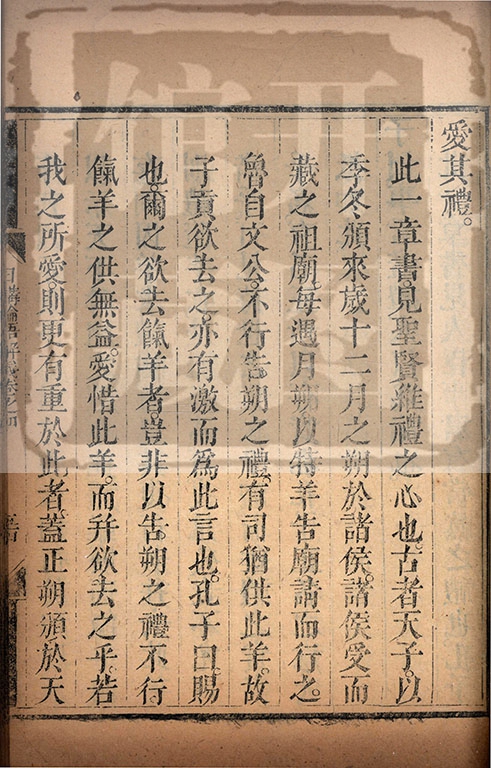 愛其禮。
此一章書。見聖賢維禮之心也。古者天子。以
季冬頒來歲十二月之朔於諸侯。諸侯受而
藏之祖廟。每遇月朔。以特羊告廟。請而行之。
魯自文公。不行告朔之禮。有司猶供此羊。故
子貢欲去之。亦有激而爲此言也。孔子曰。賜
也。爾之欲去餼羊者。豈非以告朔之禮不行
餼羊之供無益。愛惜此羊。而幷欲去之乎。若
我之所愛。則更有重於此者。葢正朔頒於天